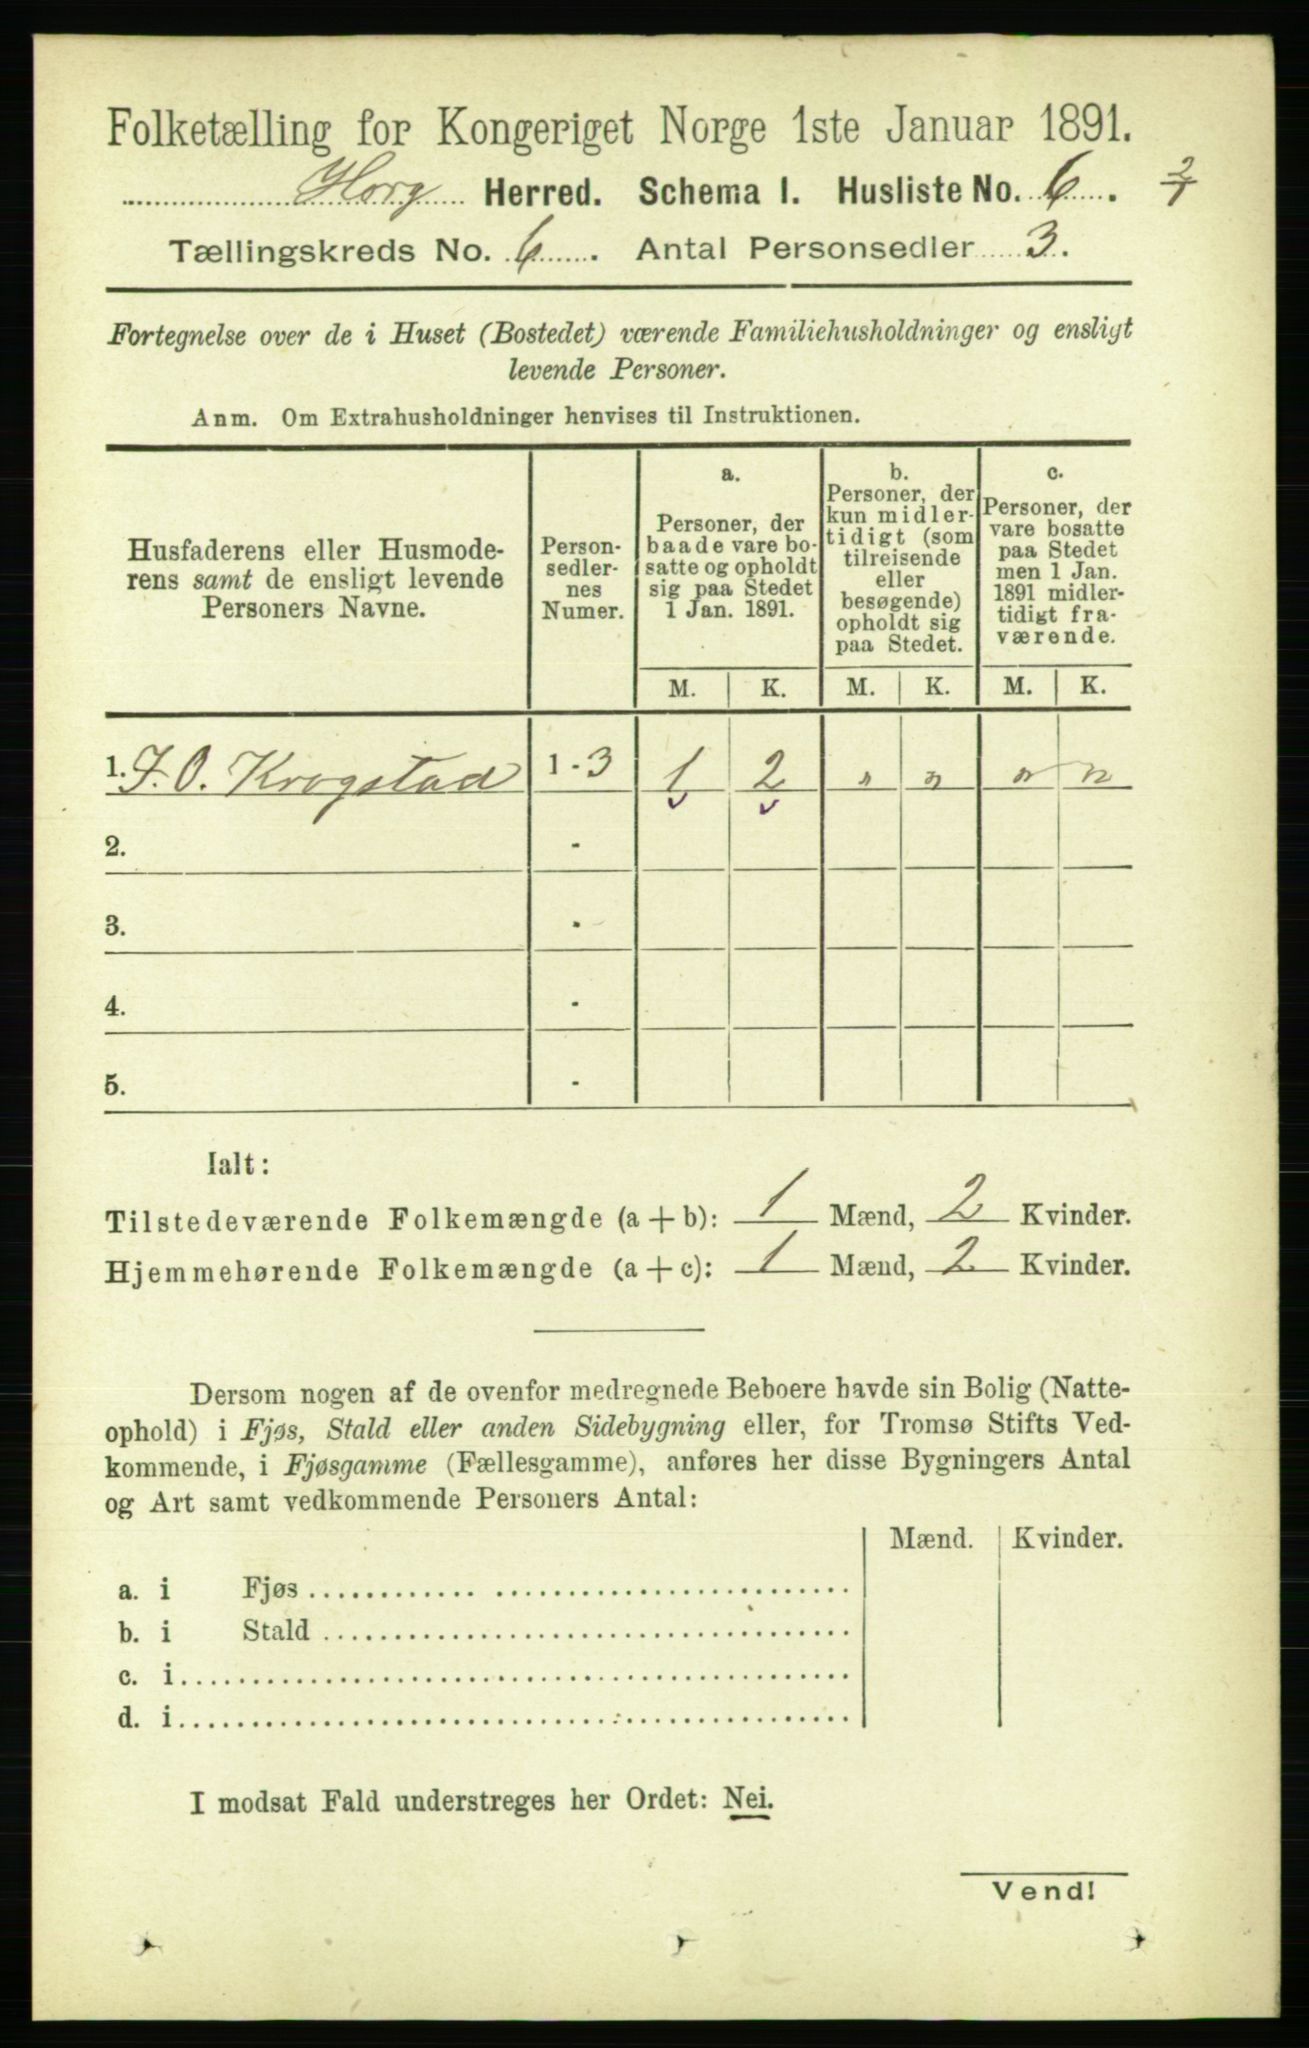 Folketælling for Kongeriget Norge 1ste Januar 1891.
Horg Herred. Schema I. Husliste No. 6. 2/1
Tællingskreds No. 6. Antal Personsedler 3.
Fortegnelse over de i Huset (Bostedet) værende Familiehusholdninger og ensligt
levende Personer.
Anm. Om Extrahusholdninger henvises til Instruktionen.
Husfaderens eller Husmode-
rens samt de ensligt levende
Personers Navne.
Person-
sedler-
nes
Numer.
a.
Personer, der
baade vare bo-
satte og opholdt
sig paa Stedet
1 Jan. 1891.
b.
Personer, der
kun midler-
tidigt (som
tilreisende
eller
besøgende)
opholdt sig
paa Stedet.
c.
Personer, der
vare bosatte
paa Stedet
men 1 Jan.
1891 midler-
tidigt fra-
værende.
M. K. M. K. M. K.
1. J. O. Krogstad 1 - 3 1 2 " " " "
2. -
3. -
4. -
5. -
Ialt:
Tilstedeværende Folkemængde (a + b): 1 Mænd, 2 Kvinder.
Hjemmehørende Folkemængde (a + c): 1 Mænd, 2 Kvinder.
Dersom nogen af de ovenfor medregnede Beboere havde sin Bolig (Natte-
ophold) i Fjøs, Stald eller anden Sidebygning eller, for Tromsø Stifts Ved-
kommende, i Fjøsgamme (Fællesgamme), anføres her disse Bygningers Antal
og Art samt vedkommende Personers Antal:
Mænd. Kvinder.
a. i Fjøs
b. i Stald
c. i
d. i
I modsat Fald understreges her Ordet: Nei.
Vend!